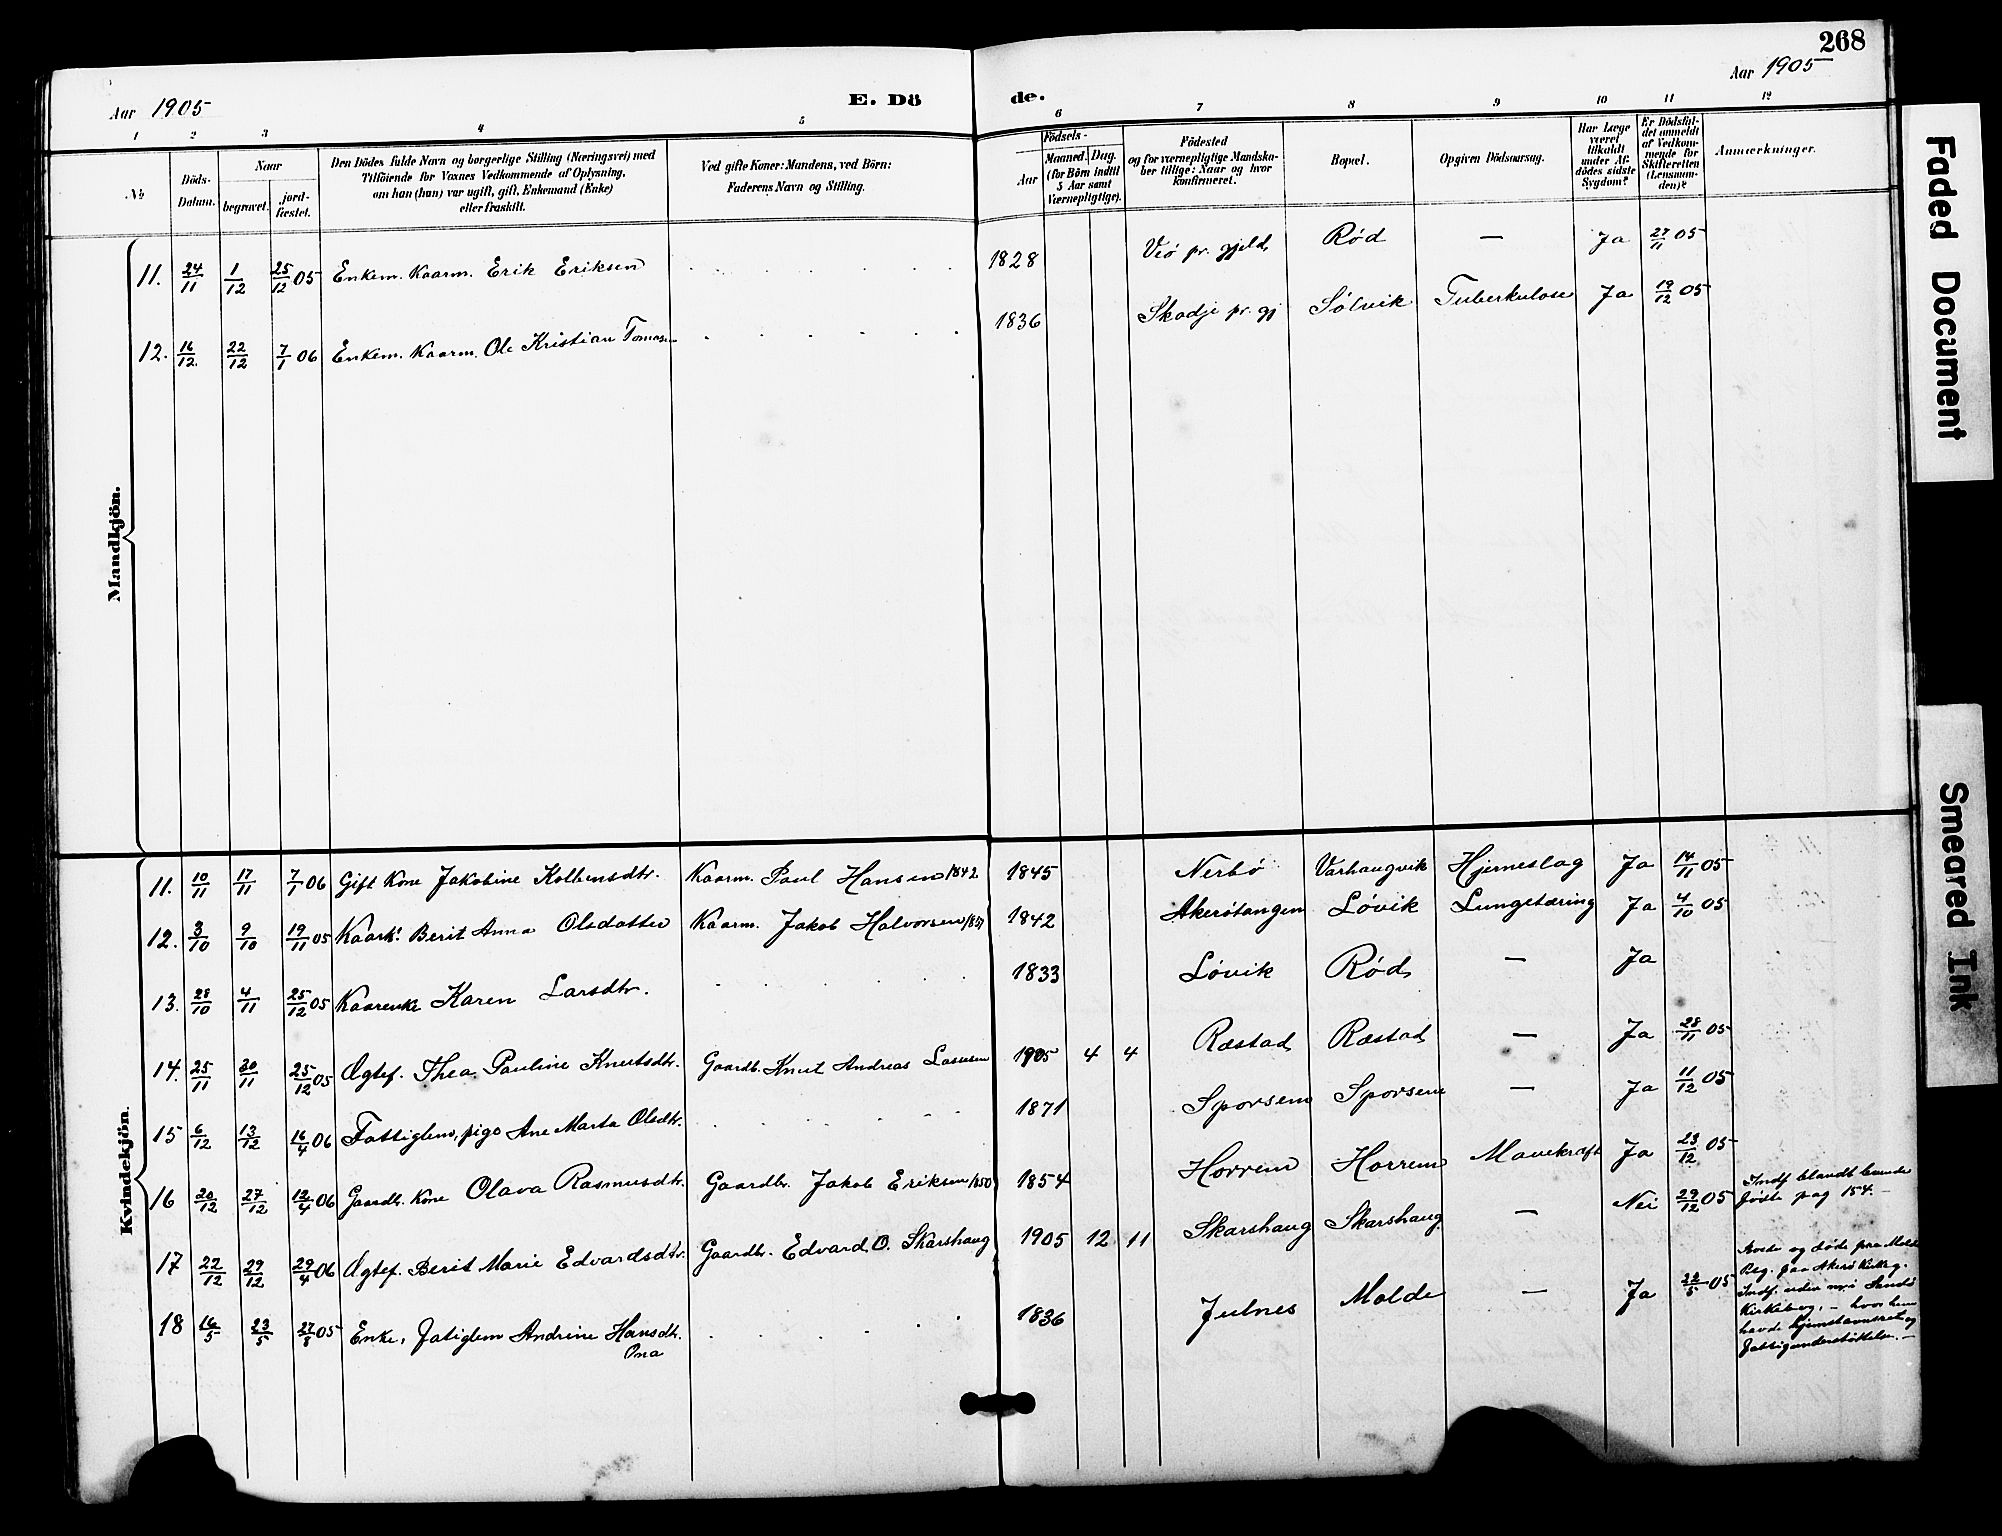 268
Aar 1905
E. Dö
de.
Aar 1905
1 2 3 4 5 6 7 8 9 10 11 12
№
Döds-Datum.
Naar
begravet.
jord-fæstet.
Den Dödes fulde Navn og borgerlige Stilling (Næringsvei) med
Tilföiende for Voxnes Vedkommende af Oplysning,
om han (hun) var ugift, gift, Enkemand (Enke)
eller fraskilt.
Ved gifte Koner: Mandens, ved Börn:
Faderens Navn og Stilling.
Födsels-
Aar
Maaned. Dag.
(for Börn indtil
5 Aar samt
Værnepligtige).
Födested
og for værnepligtige Mandska-
ber tillige: Naar og hvor
konfirmeret.
Bopæl.
Opgiven Dödsaarsag.
Har Læge
været
tilkaldt
under Af-
dödes sidste
Sygdom?
Er Dödsfal-
det anmeldt
af Vedkom-
mende for
Skifteretten
(Lensman-
den)?
Anmærkninger.
Mandkjön.
11. 24/11 1/12 25/12 05 Enkem. Kaarm. Erik Eriksen 1828 Veö pr. gjeld Rød — Ja 27/11 05
12. 16/12. 22/12 7/1 06 Enkem. Kaarm. Ole Kristian Tomasen 1836 Skodje pr. gj Sølvik Tuberkulose Ja 19/12 05
Kvindekjön.
11. 10/11 17/11 7/1 06 Gift Kone Jakobine Kolbensdtr. Kaarm. Paul Hansen 1842 1845 Nerbø Varhaugvik Hjerneslag Ja 14/11 05
12. 3/10 9/10 19/11 05 Kaark. Berit Anna Olsdatter Kaarm. Jakob Halvorsen 1842 Akerøtangen Løvik Lungetæring Ja 4/10 05
13. 28/10 4/11 25/12 05 Kaarenke Karen Larsdtr. 1833 Løvik Rød — Ja
14. 25/11 30/11 25/12 05 Ægtef. Thea Pauline Knutsdtr. Gaardb. Knut Andreas Lassesen 1905 4 4 Ræstad Ræstad — Ja 28/11 05
15 6/12 13/12 16/4 06 Fattiglem, pige Ane Marta Olsdtr. 1871 Sporsem Sporsem — Ja 11/12 05
16 20/12 27/12 12/4 06 Gaardb. Kone Olava Rasmusdtr. Gaardbr. Jakob Eriksen 1850 1854 Horrem Horrem Mavekræft Ja 23/12 05
17 22/12 29/12 29/4 06 Ægtef. Berit Marie Edvardsdtr. Gaardbr. Edvard O. Skarshaug 1905 12 11 Skarshaug Skarshaug — Nei 29/12 05 Indf. blandt levende
fødte pag 154.—
18 16/5 23/5 27/8 05 Enke, Fatiglem Andrine Hansdtr.
Ona 1836 Julnes Molde — Ja 22/5 05 og døde paa Molde
Beg. paa Akerø Kirkeg.
Indf. uden nr. i Sandø
Kirkebog, — hvor hun
havde hjemstavnsret og
Fattigunderstøttelse.—
Faded Document
Smeared Ink